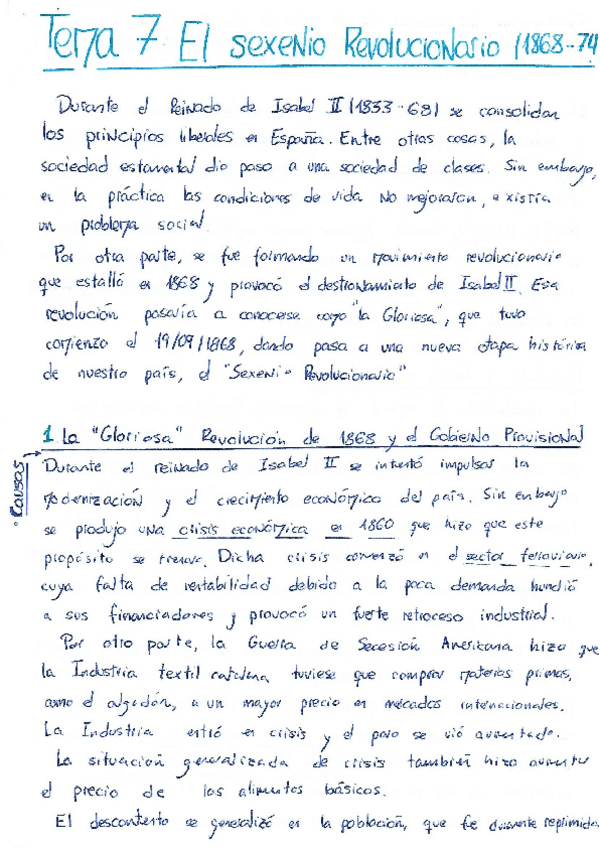 Tema 7. El sexenio Revolucionario (1868-74
Durante el Reinado de Isabel II (1833-68) se consolidan
los principios liberales en España. Entre otras cosas, la
sociedad estamental dio paso a una sociedad de clases. Sin embargo,
en la práctica las condiciones de vida no mejoraron, existía
un problema social.
Por otra parte, se fue formando un movimiento revolucionario
que estalló en 1868 y provocó el destronamiento de Isabel II. Esa
revolución pasaría a conocerse como "la Gloriosa", que tuvo
comienzo el 19/09/1868, dando paso a una nueva etapa histórica
de nuestro país, el "Sexenio Revolucionario"
1 La "Gloriosa" Revolución de 1868 y el Gobierno Provisional
• Causas
Durante el reinado de Isabel II se intentó impulsar la
modernización y el crecimiento económico del país. Sin embargo
se produjo una crisis económica en 1860 que hizo que este
propósito se truncase. Dicha crisis comenzó en el sector ferroviario,
cuya falta de rentabilidad debido a la poca demanda hundió
a sus financiadores y provocó un fuerte retroceso industrial.
Por otro parte, la Guerra de Secesión Americana hizo que
la Industria textil catalana tuviese que comprar materias primas,
como el algodón, a un mayor precio en mercados internacionales.
La Industria entró en crisis y el paro se vió aumentado.
La situación generalizada de crisis también hizo aumentar
el precio de los alimentos básicos.
El descontento se generalizó en la población, que fue duramente reprimida